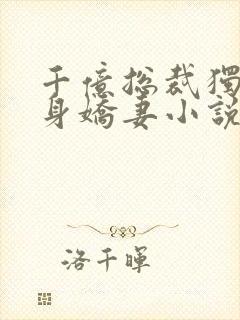 千億总裁獨
身嬌妻小說
洛千暉